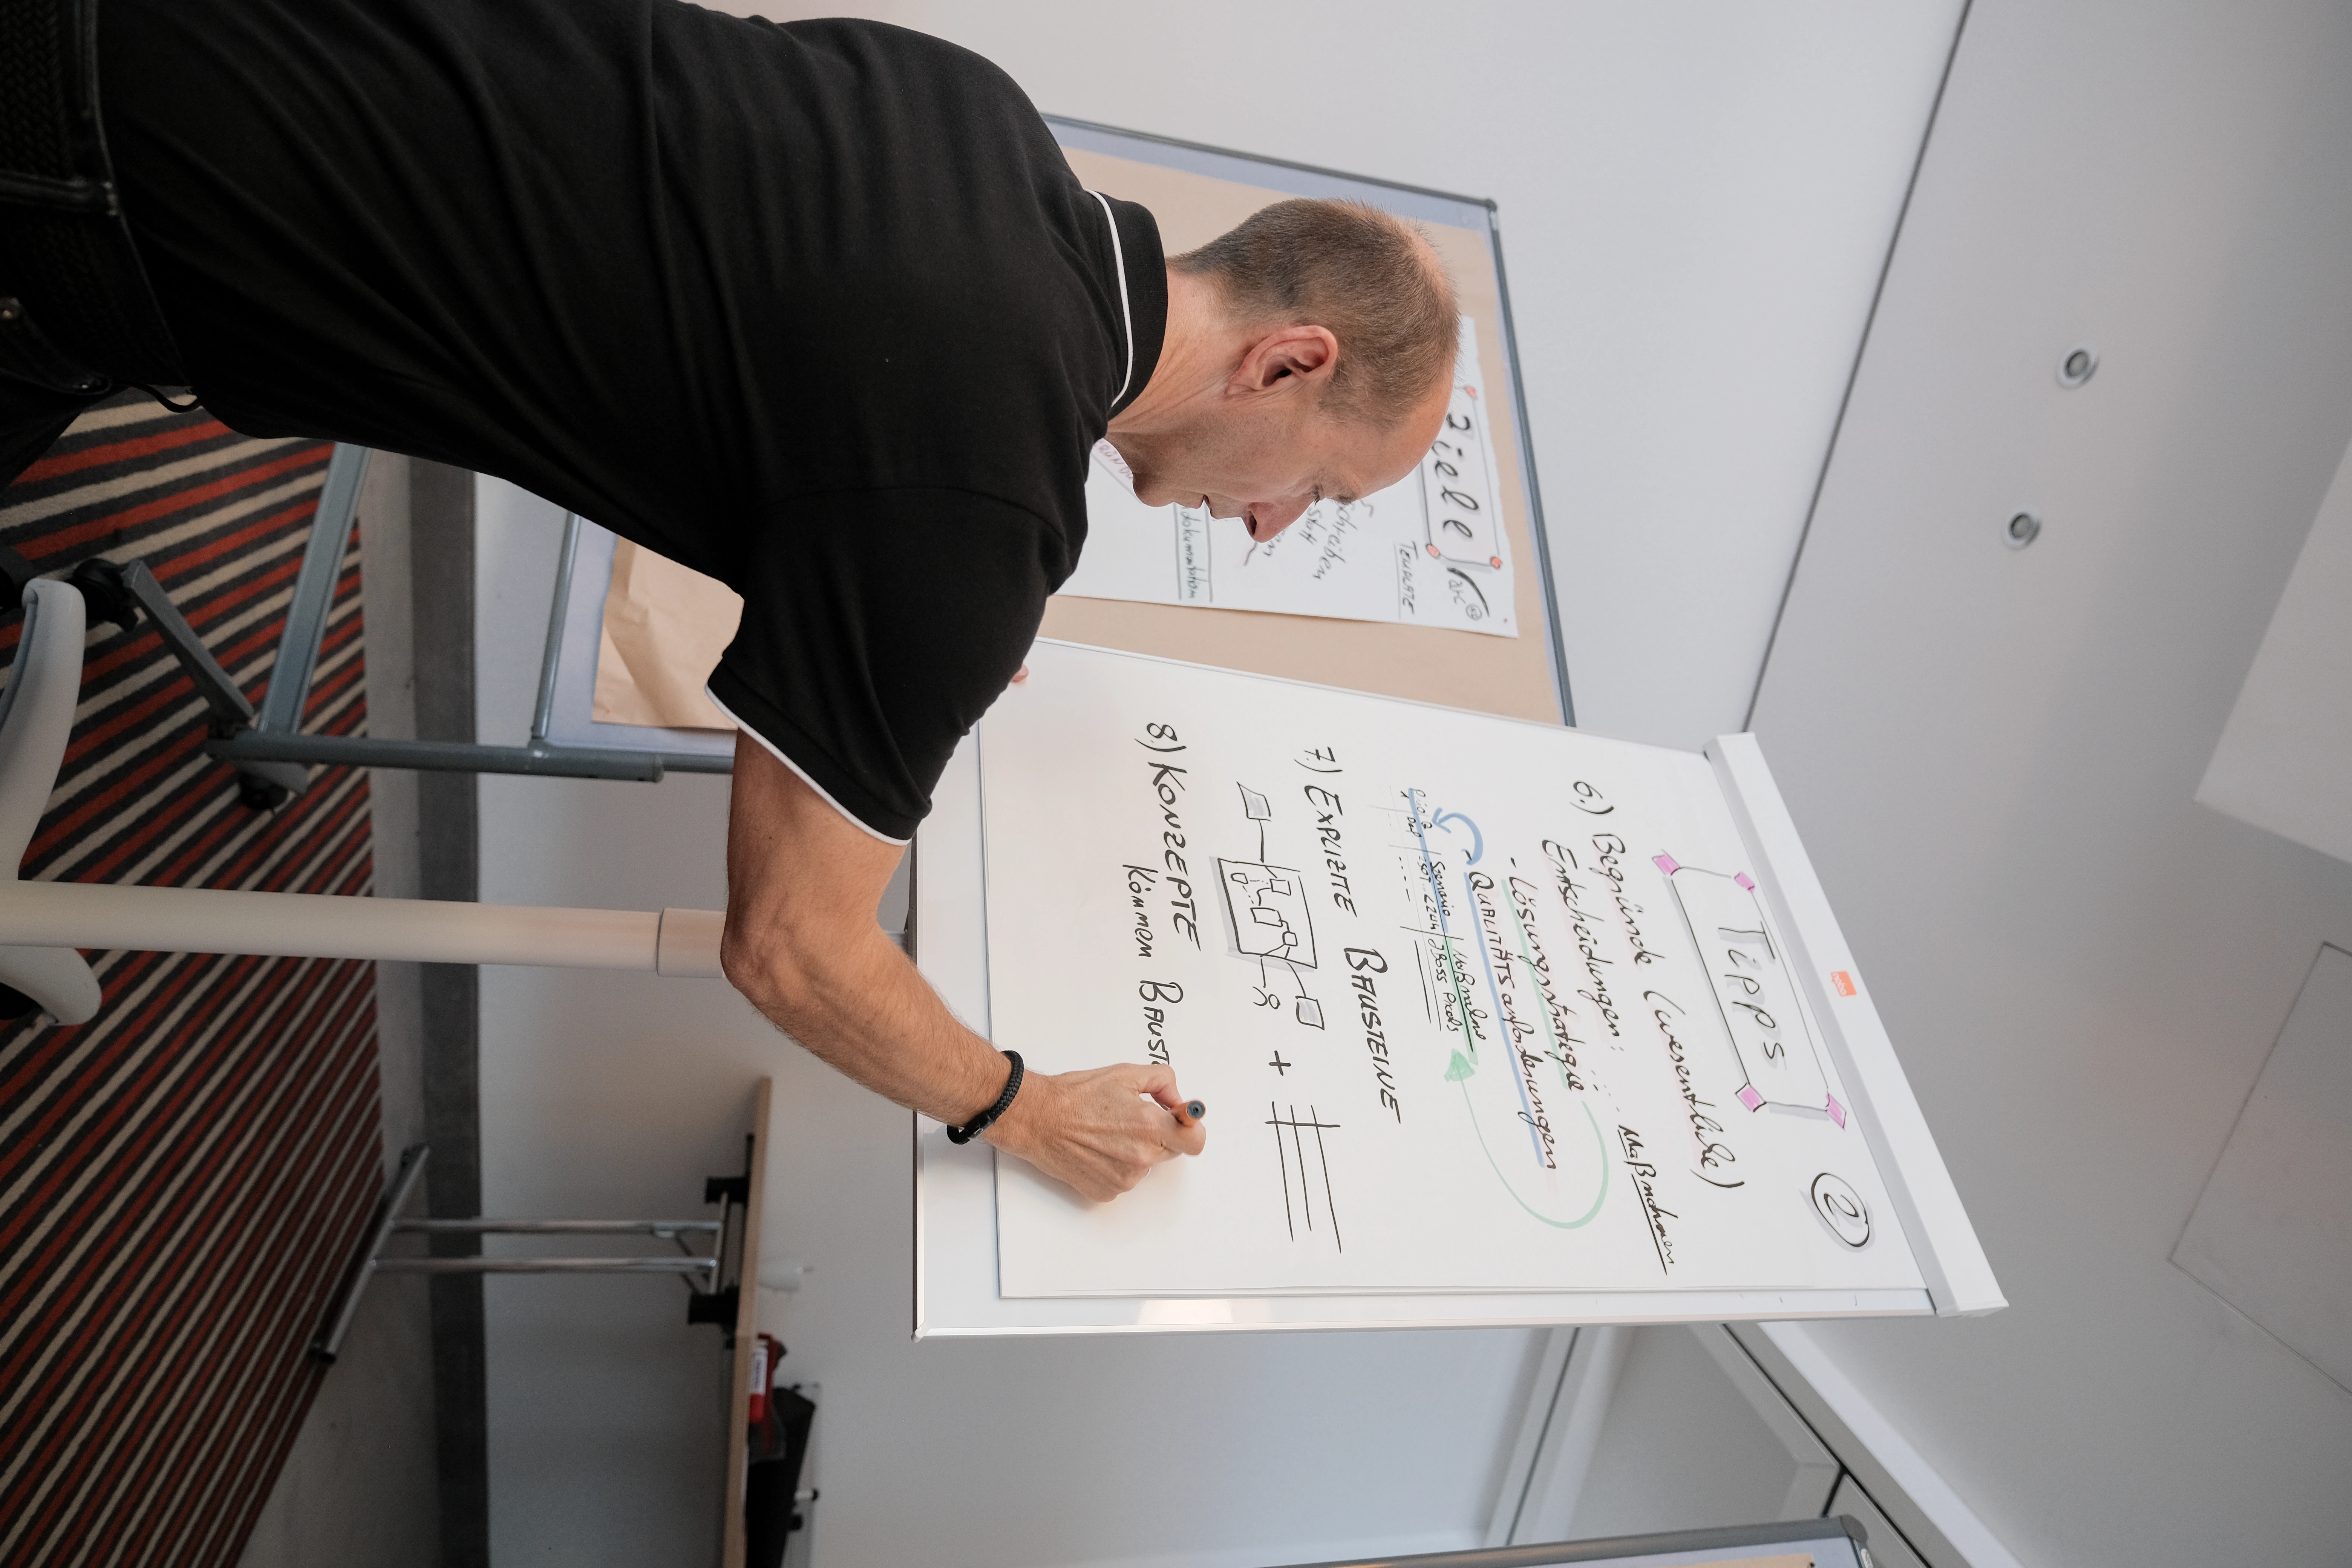 Tipps
2
6.) Begründe (wesentliche)
Entscheidungen: ... Maßnahmen
- Lösungsstrategie
- QUALITÄTSanforderungen
Szenario | Maßnahme
JBoss
7.) EXPLIZITE BAUSTEINE
+
8.) KONZEPTE
können BAUSTE
Ziele
arc 42
TEMPLATE
schreiben
dokumentation